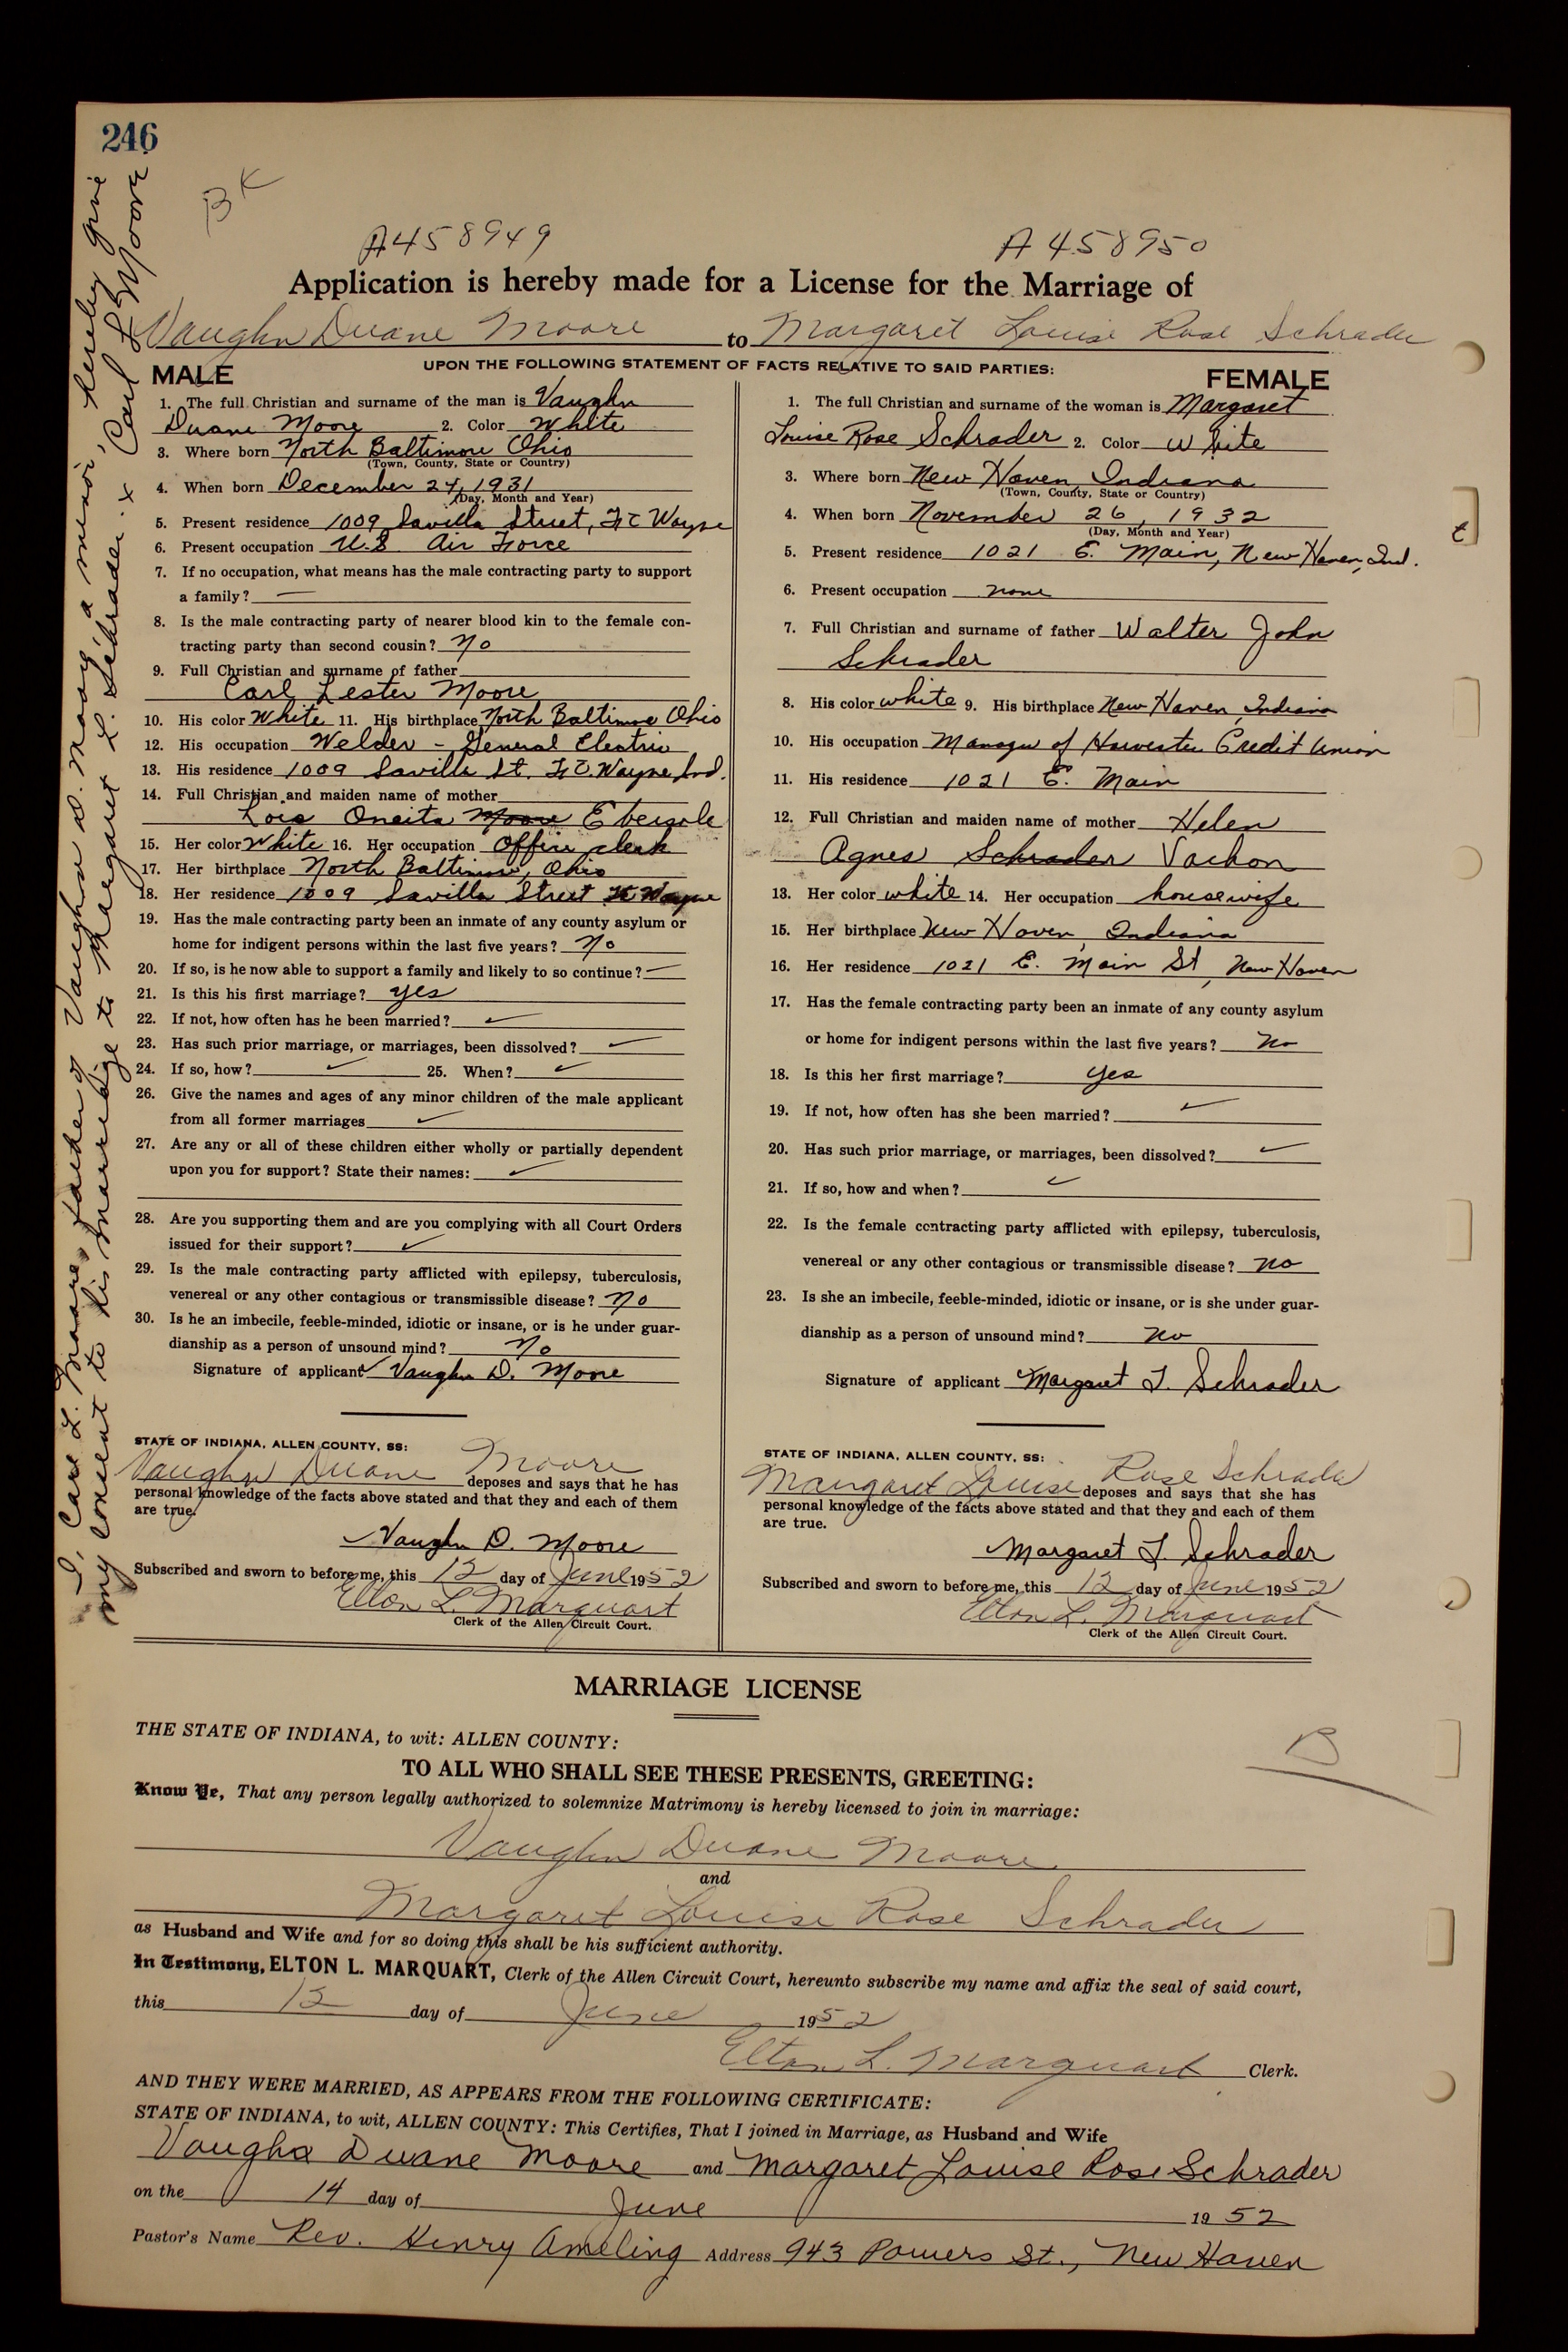 246
BK
A458949 A458950
Application is hereby made for a License for the Marriage of
Vaughn Duane Moore to Margaret Louise Rose Schrader
UPON THE FOLLOWING STATEMENT OF FACTS RELATIVE TO SAID PARTIES:
MALE
1. The full Christian and surname of the man is Vaughn
Duane Moore 2. Color White
3. Where born North Baltimore Ohio
(Town, County, State or Country)
4. When born December 24, 1931
(Day, Month and Year)
5. Present residence 1009 Savilla Street, Ft Wayne
6. Present occupation U.S. Air Force
7. If no occupation, what means has the male contracting party to support
a family? —
8. Is the male contracting party of nearer blood kin to the female con-
tracting party than second cousin? No
9. Full Christian and surname of father
Carl Lester Moore
10. His color White 11. His birthplace North Baltimore Ohio
12. His occupation Welder - General Electric
13. His residence 1009 Savilla St. Ft. Wayne, Ind.
14. Full Christian and maiden name of mother
Lois Oneita Moore Ebersole
15. Her color White 16. Her occupation Office clerk
17. Her birthplace North Baltimore, Ohio
18. Her residence 1009 Savilla Street Ft Wayne
19. Has the male contracting party been an inmate of any county asylum or
home for indigent persons within the last five years? No
20. If so, is he now able to support a family and likely to so continue? —
21. Is this his first marriage? yes
22. If not, how often has he been married? ✓
23. Has such prior marriage, or marriages, been dissolved? ✓
24. If so, how? ✓ 25. When? ✓
26. Give the names and ages of any minor children of the male applicant
from all former marriages ✓
27. Are any or all of these children either wholly or partially dependent
upon you for support? State their names: ✓
28. Are you supporting them and are you complying with all Court Orders
issued for their support? ✓
29. Is the male contracting party afflicted with epilepsy, tuberculosis,
venereal or any other contagious or transmissible disease? No
30. Is he an imbecile, feeble-minded, idiotic or insane, or is he under guar-
dianship as a person of unsound mind? No
Signature of applicant ✓ Vaughn D. Moore
STATE OF INDIANA, ALLEN COUNTY, SS:
Vaughn Duane Moore deposes and says that he has
personal knowledge of the facts above stated and that they and each of them
are true.
✓ Vaughn D. Moore
Subscribed and sworn to before me, this 12 day of June 1952
Elton L. Marquart
Clerk of the Allen Circuit Court.
FEMALE
1. The full Christian and surname of the woman is Margaret
Louise Rose Schrader 2. Color White
3. Where born New Haven, Indiana
(Town, County, State or Country)
4. When born November 26, 1932
(Day, Month and Year)
5. Present residence 1021 E. Main, New Haven, Ind.
6. Present occupation none
7. Full Christian and surname of father Walter John
Schrader
8. His color white 9. His birthplace New Haven, Indiana
10. His occupation Manager of Harvester Credit Union
11. His residence 1021 E. Main
12. Full Christian and maiden name of mother Helen
Agnes Schrader Vachon
13. Her color white 14. Her occupation housewife
15. Her birthplace New Haven, Indiana
16. Her residence 1021 E. Main St, New Haven
17. Has the female contracting party been an inmate of any county asylum
or home for indigent persons within the last five years? No
18. Is this her first marriage? yes
19. If not, how often has she been married? ✓
20. Has such prior marriage, or marriages, been dissolved? ✓
21. If so, how and when? ✓
22. Is the female contracting party afflicted with epilepsy, tuberculosis,
venereal or any other contagious or transmissible disease? No
23. Is she an imbecile, feeble-minded, idiotic or insane, or is she under guar-
dianship as a person of unsound mind? No
Signature of applicant Margaret L. Schrader
STATE OF INDIANA, ALLEN COUNTY, SS:
Margaret Louise Rose Schrader deposes and says that she has
personal knowledge of the facts above stated and that they and each of them
are true.
Margaret L. Schrader
Subscribed and sworn to before me, this 12 day of June 1952
Elton L. Marquart
Clerk of the Allen Circuit Court.
I, Carl L. Moore, father of Vaughn D. Moore, a minor, hereby give
my consent to his marriage to Margaret L. Schrader. x Carl L Moore
t
MARRIAGE LICENSE
THE STATE OF INDIANA, to wit: ALLEN COUNTY:
B
TO ALL WHO SHALL SEE THESE PRESENTS, GREETING:
Know Ye, That any person legally authorized to solemnize Matrimony is hereby licensed to join in marriage:
Vaughn Duane Moore
and
Margaret Louise Rose Schrader
as Husband and Wife and for so doing this shall be his sufficient authority.
In Testimony, ELTON L. MARQUART, Clerk of the Allen Circuit Court, hereunto subscribe my name and affix the seal of said court,
this 12 day of June 1952
Elton L. Marquart Clerk.
AND THEY WERE MARRIED, AS APPEARS FROM THE FOLLOWING CERTIFICATE:
STATE OF INDIANA, to wit, ALLEN COUNTY: This Certifies, That I joined in Marriage, as Husband and Wife
Vaughn Duane Moore and Margaret Louise Rose Schrader
on the 14 day of June 1952
Pastor's Name Rev. Henry Ameling Address 943 Powers St., New Haven